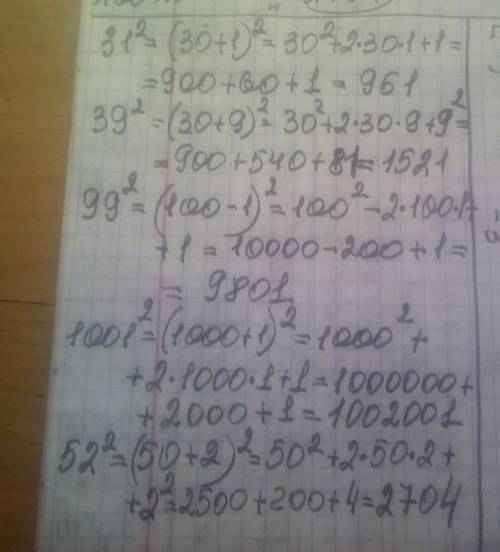 31² = (30+1)² = 30² + 2·30·1 + 1 =
= 900 + 60 + 1 = 961
39² = (30+9)² = 30² + 2·30·9 + 9² =
= 900 + 540 + 81 = 1521
99² = (100-1)² = 100² - 2·100·1+
+ 1 = 10000 - 200 + 1 =
= 9801
1001² = (1000+1)² = 1000² +
+ 2·1000·1 + 1 = 1000000 +
+ 2000 + 1 = 1002001
52² = (50+2)² = 50² + 2·50·2 +
+ 2² = 2500 + 200 + 4 = 2704